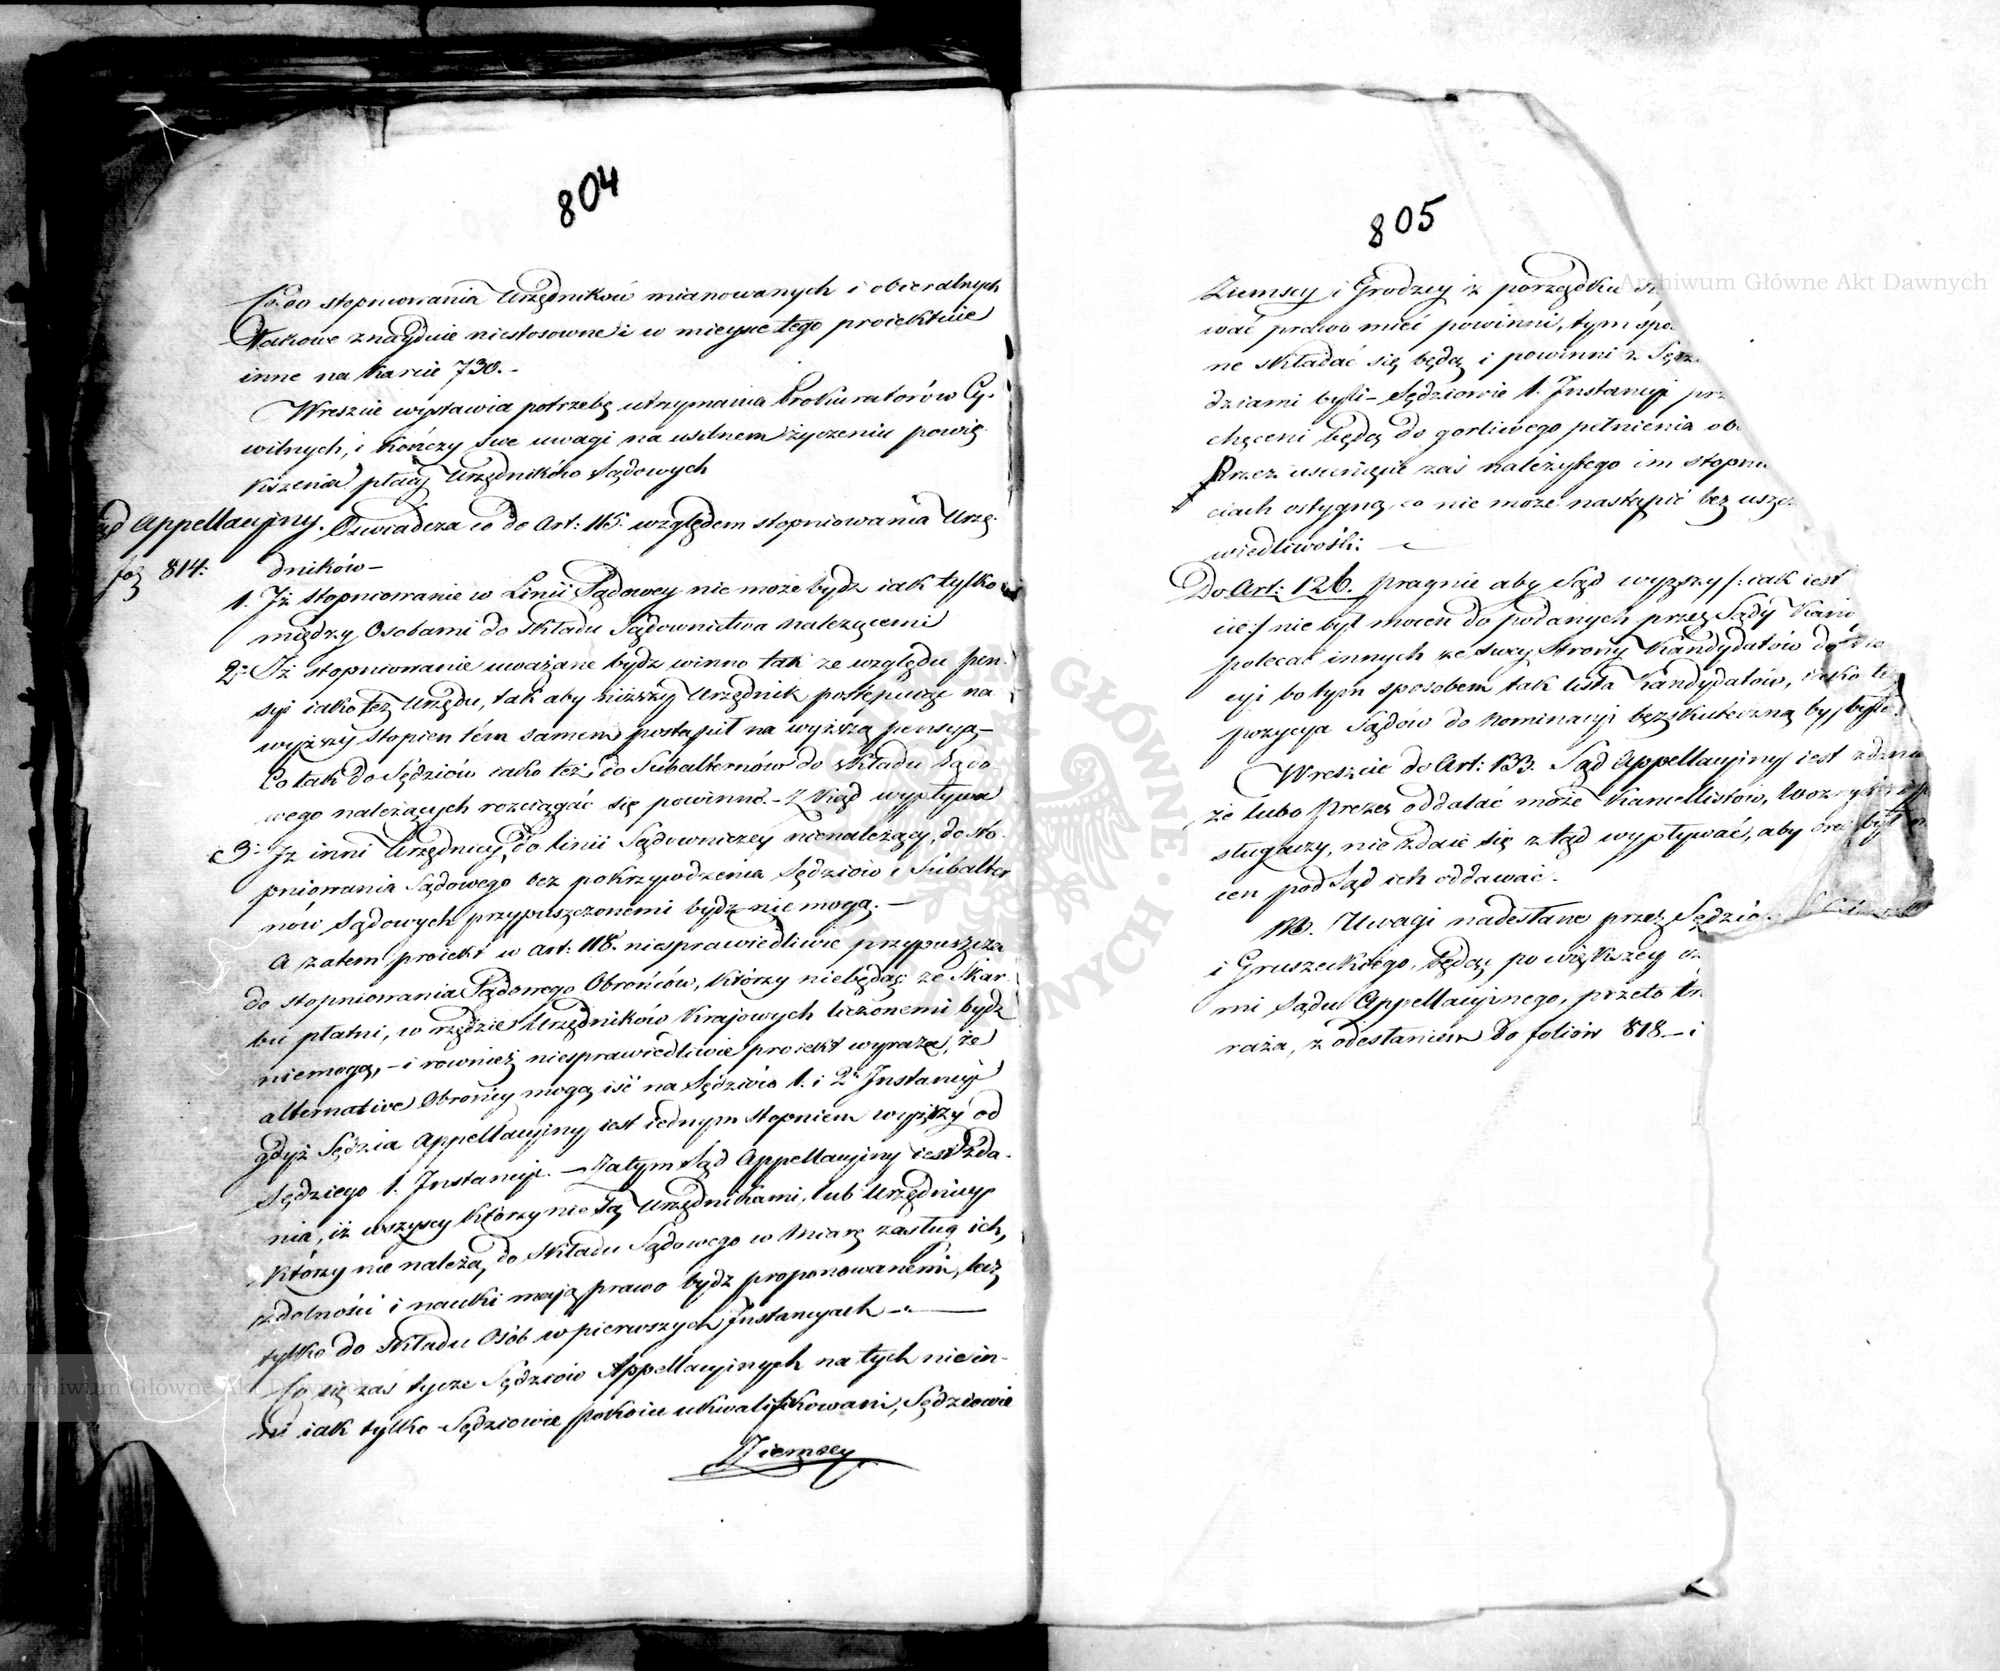 804
Co do stopniowania Urzędników mianowanych i obieralnych
takowe znayduie niestosowne i w mieysce tego proiektuie
inne na karcie 730.-
Wreszcie wystawia potrzebę utrzymania Prokuratorów Cy-
wilnych, i kończy swe uwagi na usilnem życzeniu powię-
kszenia płacy Urzędników Sądowych
Appellacyiny. Oświadcza co do Art: 115. względem stopniowania Urzę-
fol 814: dników-
1. Iż stopniowanie w Linii Sądowey nie może bydz iak tylko
między Osobami do składu Sądownictwa należącemi
2. Iż stopniowanie uważane bydz winno tak ze względu pen-
syi iako też Urzędu, tak aby niższy Urzędnik postępuiąc na
wyższy stopien tém samem postąpił na wyższą pensyą-
Co tak do Sędziów iako też do Subalternów do składu Sądo-
wego należących rozciągać się powinno.- Z kąd wypływa
3. Iż inni Urzędnicy do linii Sądowniczey nienależący, do sto-
pniowania Sądowego bez pokrzywdzenia Sędziów i Subalter
nów Sądowych przypuszczonemi bydz nie mogą.-
A zatem proiekt w art: 118. niesprawiedliwie przypuszcza
do stopniowania Sądowego Obrońców, którzy niebędąc ze Skar-
bu płatni, w rzędzie Urzędników Krajowych liczonemi bydz
niemogą,- i rownież niesprawiedliwie proiekt wyraża, że
alternative Obrońcy mogą iść na Sędziów 1. i 2. Instancyi
gdyż Sędzia Appellacyiny iest iednym stopniem wyższy od
Sędziego 1. Instancyi.- Zatym Sąd Appellacyiny iest zda-
nia, iż wszyscy którzy nie są Urzędnikami, lub Urzędnicy
którzy nie należą do składu Sądowego w miarę zasług ich,
zdolności i nauki mają prawo bydz proponowanemi, lecz
tylko do składu Osób w pierwszych Instancyach-
Co się zaś tycze Sędziów Appellacyinych na tych nie in-
ni iak tylko Sędziowie pokoiu ukwalifikowani, Sędziowie
Ziemscy
805
Ziemscy i Grodzcy z porządku
wać prawo mieć powinni, tym
ne składać się będą i powinni z
dziami byli- Sędziowie 1. Instancyi
chęceni będą do gorliwego pełnienia
Przez usunięcie zaś należytego im
ciach ostygną, co nie może nastąpić bez
wiedliwości.
Do Art: 126. pragnie aby Sąd wyższy /: iak iest
cie:/ nie był mocen do podanych przez Sądy
polecać innych ze swey Strony Kandydatów do
cyi bo tym sposobem tak lista Kandydatów, iako
pozycya Sądów do Nominacyi bezskuteczną by była.
Wreszcie do Art: 133. Sąd Appellacyiny iest zdania
że lubo Prezes oddalać może Kancellistów, Woznych
sługaczy, nie zdaie się z tąd wypływać, aby on był
cen pod Sąd ich oddawać.
NB. Uwagi nadesłane przez
i Gruszeckiego, będąc po większey
mi Sądu Appellacyinego, przeto
raża, z odesłaniem do foliów 818.- i
Archiwum Główne Akt Dawnych
Archiwum Główne Akt Dawnych